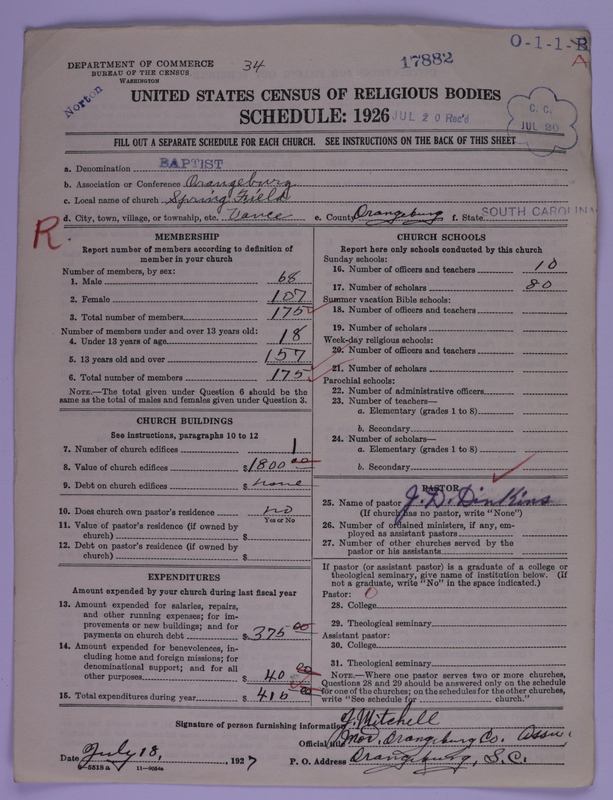 DEPARTMENT OF COMMERCE
BUREAU OF THE CENSUS
WASHINGTON
34
17882
O-1-1-B
A
Norton
UNITED STATES CENSUS OF RELIGIOUS BODIES
SCHEDULE: 1926
JUL 20 Rec'd
C. C.
JUL 20
FILL OUT A SEPARATE SCHEDULE FOR EACH CHURCH. SEE INSTRUCTIONS ON THE BACK OF THIS SHEET
a. Denomination BAPTIST
b. Association or Conference Orangeburg
c. Local name of church Spring Field
d. City, town, village, or township, etc. Vance e. County Orangeburg f. State SOUTH CAROLINA
R.
MEMBERSHIP
Report number of members according to definition of
member in your church
Number of members, by sex:
1. Male 68
2. Female 107
3. Total number of members 175
Number of members under and over 13 years old:
4. Under 13 years of age 18
5. 13 years old and over 157
6. Total number of members 175
NOTE.—The total given under Question 6 should be the
same as the total of males and females given under Question 3.
CHURCH BUILDINGS
See instructions, paragraphs 10 to 12
7. Number of church edifices 1
8. Value of church edifices $1800 00
9. Debt on church edifices $ none
10. Does church own pastor's residence no
Yes or No
11. Value of pastor's residence (if owned by
church) $
12. Debt on pastor's residence (if owned by
church) $
EXPENDITURES
Amount expended by your church during last fiscal year
13. Amount expended for salaries, repairs,
and other running expenses; for im-
provements or new buildings; and for
payments on church debt $375 00
14. Amount expended for benevolences, in-
cluding home and foreign missions; for
denominational support; and for all
other purposes $40 00
15. Total expenditures during year $415 00
CHURCH SCHOOLS
Report here only schools conducted by this church
Sunday schools:
16. Number of officers and teachers 10
17. Number of scholars 80
Summer vacation Bible schools:
18. Number of officers and teachers
19. Number of scholars
Week-day religious schools:
20. Number of officers and teachers
21. Number of scholars
Parochial schools:
22. Number of administrative officers
23. Number of teachers—
a. Elementary (grades 1 to 8)
b. Secondary
24. Number of scholars—
a. Elementary (grades 1 to 8)
b. Secondary
PASTOR
25. Name of pastor J. D. Dinkins
(If church has no pastor, write "None")
26. Number of ordained ministers, if any, em-
ployed as assistant pastors
27. Number of other churches served by the
pastor or his assistants
If pastor (or assistant pastor) is a graduate of a college or
theological seminary, give name of institution below. (If
not a graduate, write "No" in the space indicated.)
Pastor: 0
28. College
29. Theological seminary
Assistant pastor:
30. College
31. Theological seminary
NOTE.—Where one pastor serves two or more churches,
Questions 28 and 29 should be answered only on the schedule
for one of the churches; on the schedules for the other churches,
write "See schedule for church."
Signature of person furnishing information J. Mitchell
Official title Mod. Orangeburg Co. Assn.
Date July 18, 1927 P. O. Address Orangeburg, S.C.
8-5518a 11-9034a